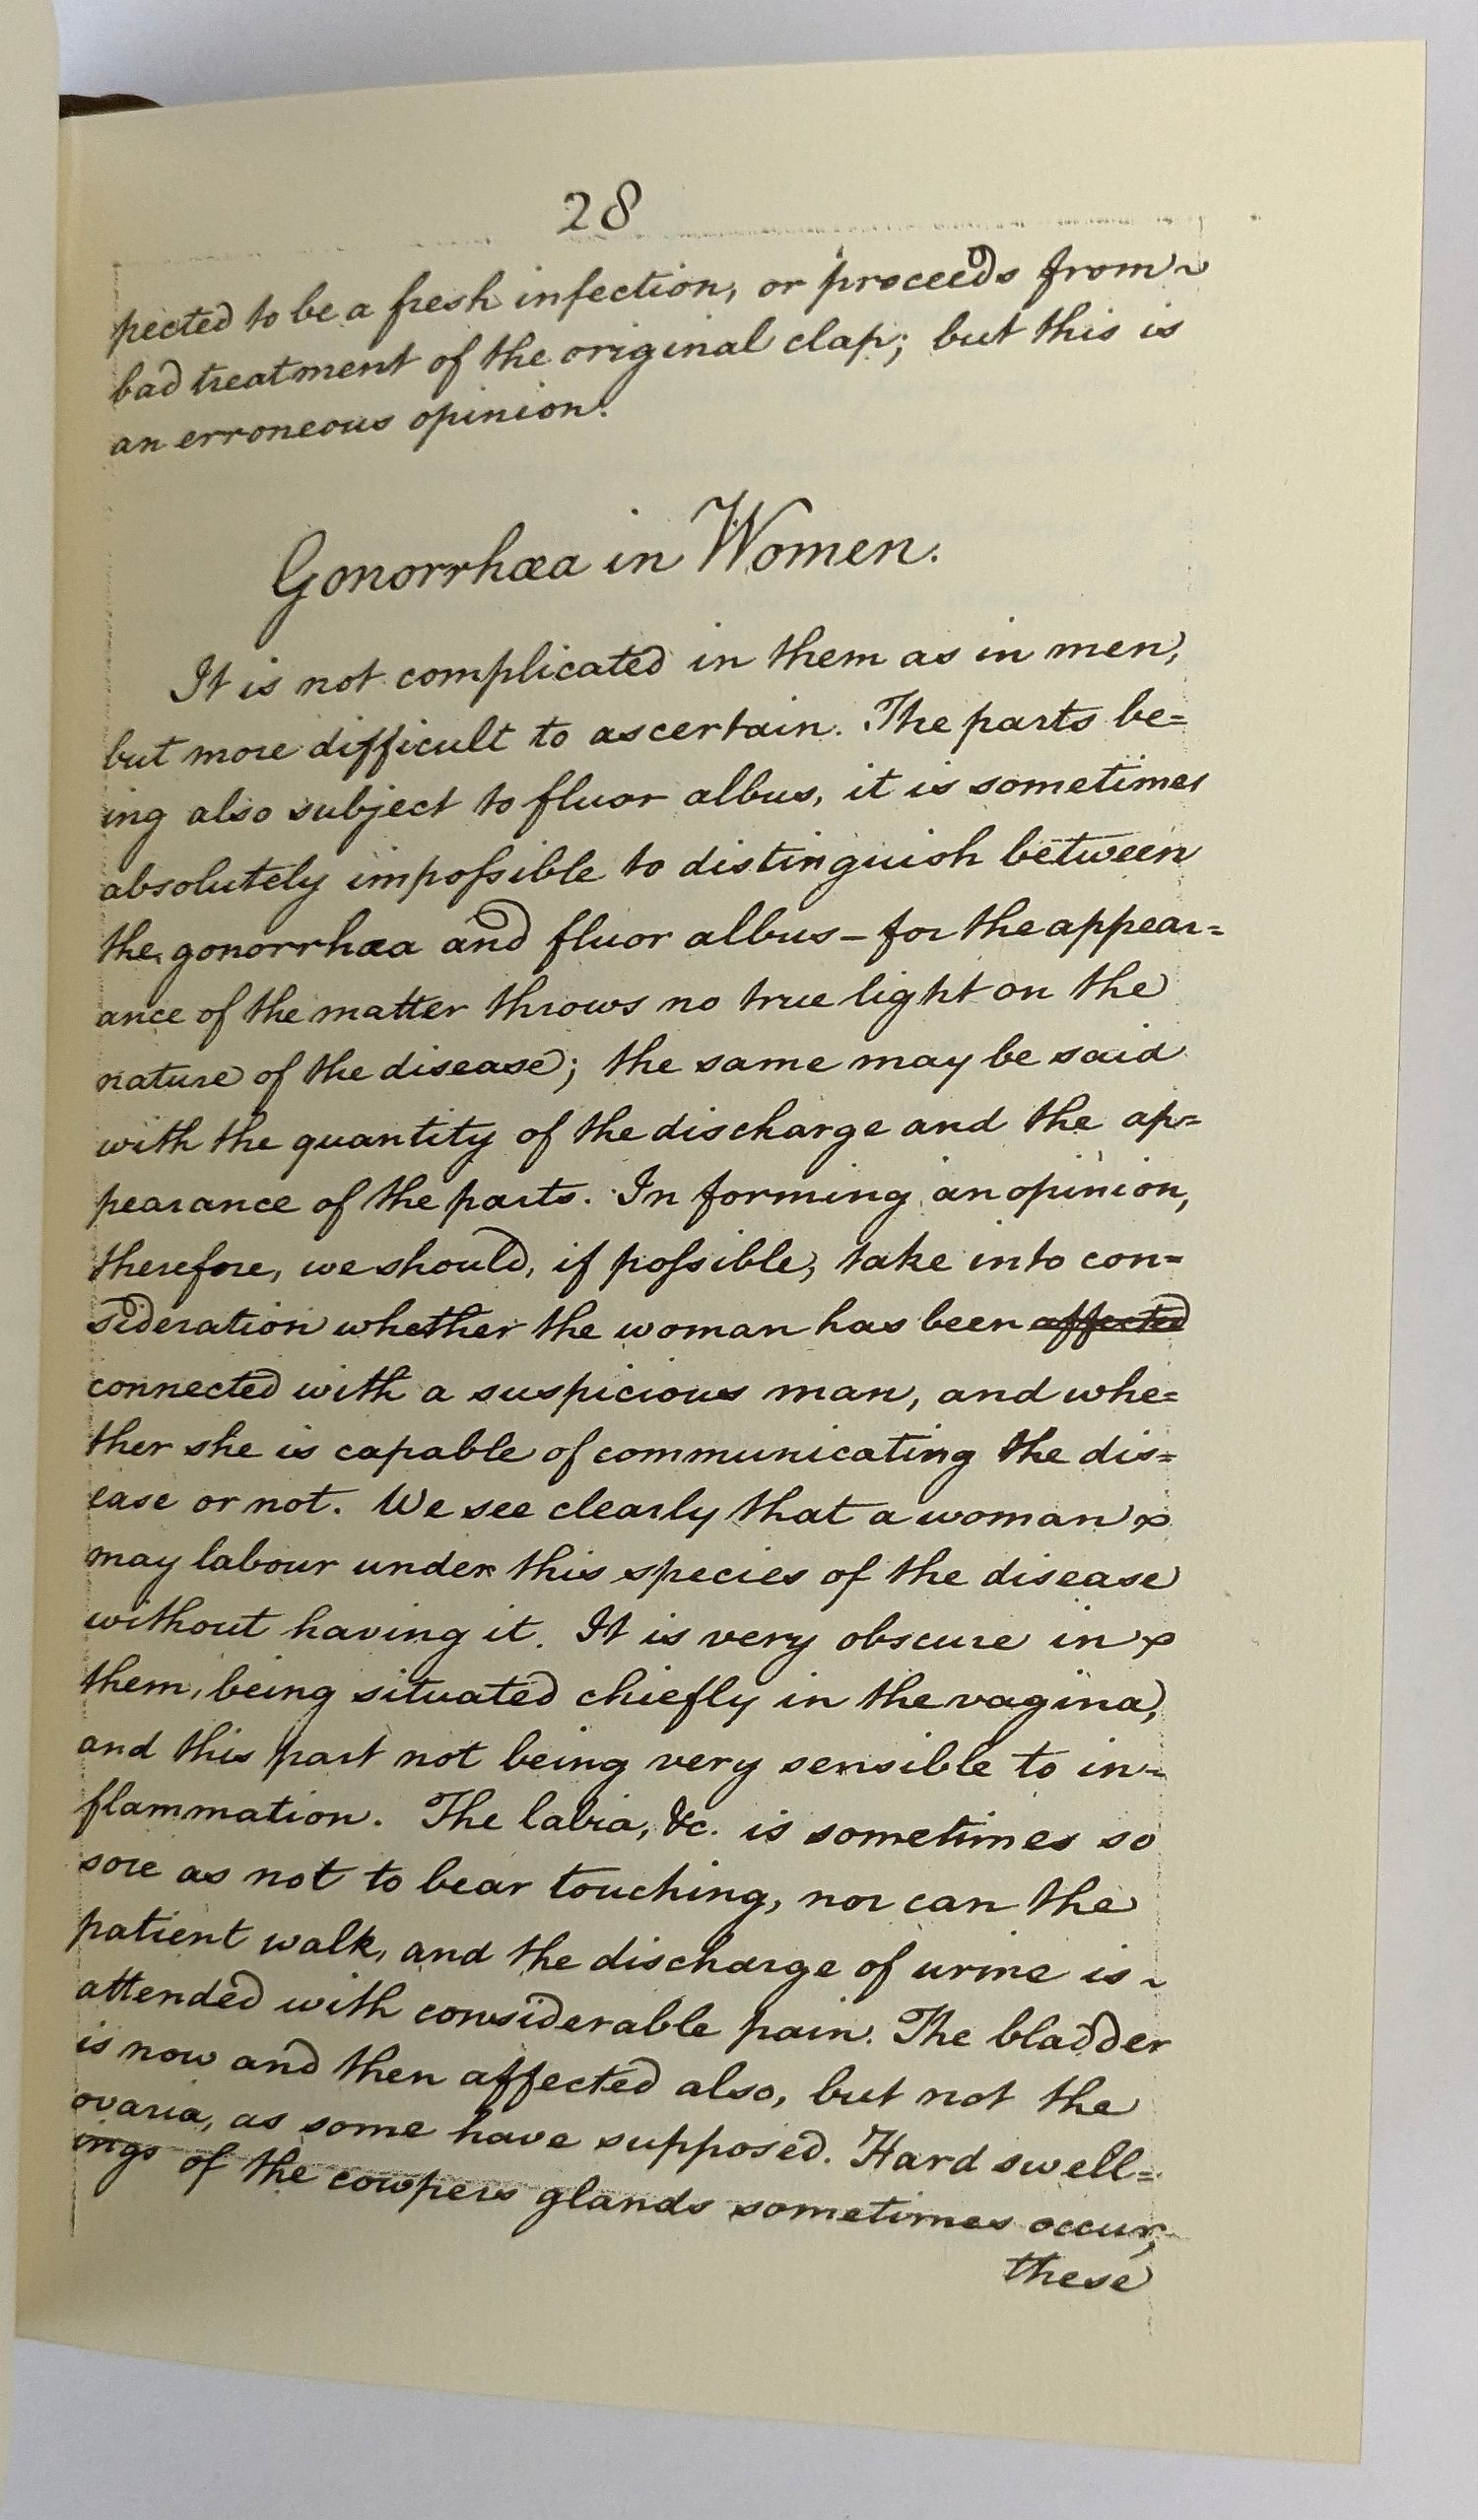 28
pected to be a fresh infection, or proceeds from ~
bad treatment of the original clap; but this is
an erroneous opinion.
Gonorrhœa in Women.
It is not complicated in them as in men,
but more difficult to ascertain. The parts be=
ing also subject to fluor albus, it is sometimes
absolutely impoſsible to distinguish between
the gonorrhœa and fluor albus – for the appear=
ance of the matter throws no true light on the
nature of the disease; the same may be said
with the quantity of the discharge and the ap=
pearance of the parts. In forming an opinion,
therefore, we should, if poſsible, take into con=
sideration whether the woman has been affected
connected with a suspicious man, and whe=
ther she is capable of communicating the dis=
ease or not. We see clearly that a woman
may labour under this species of the disease
without having it. It is very obscure in
them, being situated chiefly in the vagina,
and this part not being very sensible to in=
flammation. The labia, &c. is sometimes so
sore as not to bear touching, nor can the
patient walk, and the discharge of urine is ~
attended with considerable pain. The bladder
is now and then affected also, but not the
ovaria, as some have supposed. Hard swell=
ings of the cowpers glands sometimes occur,
these